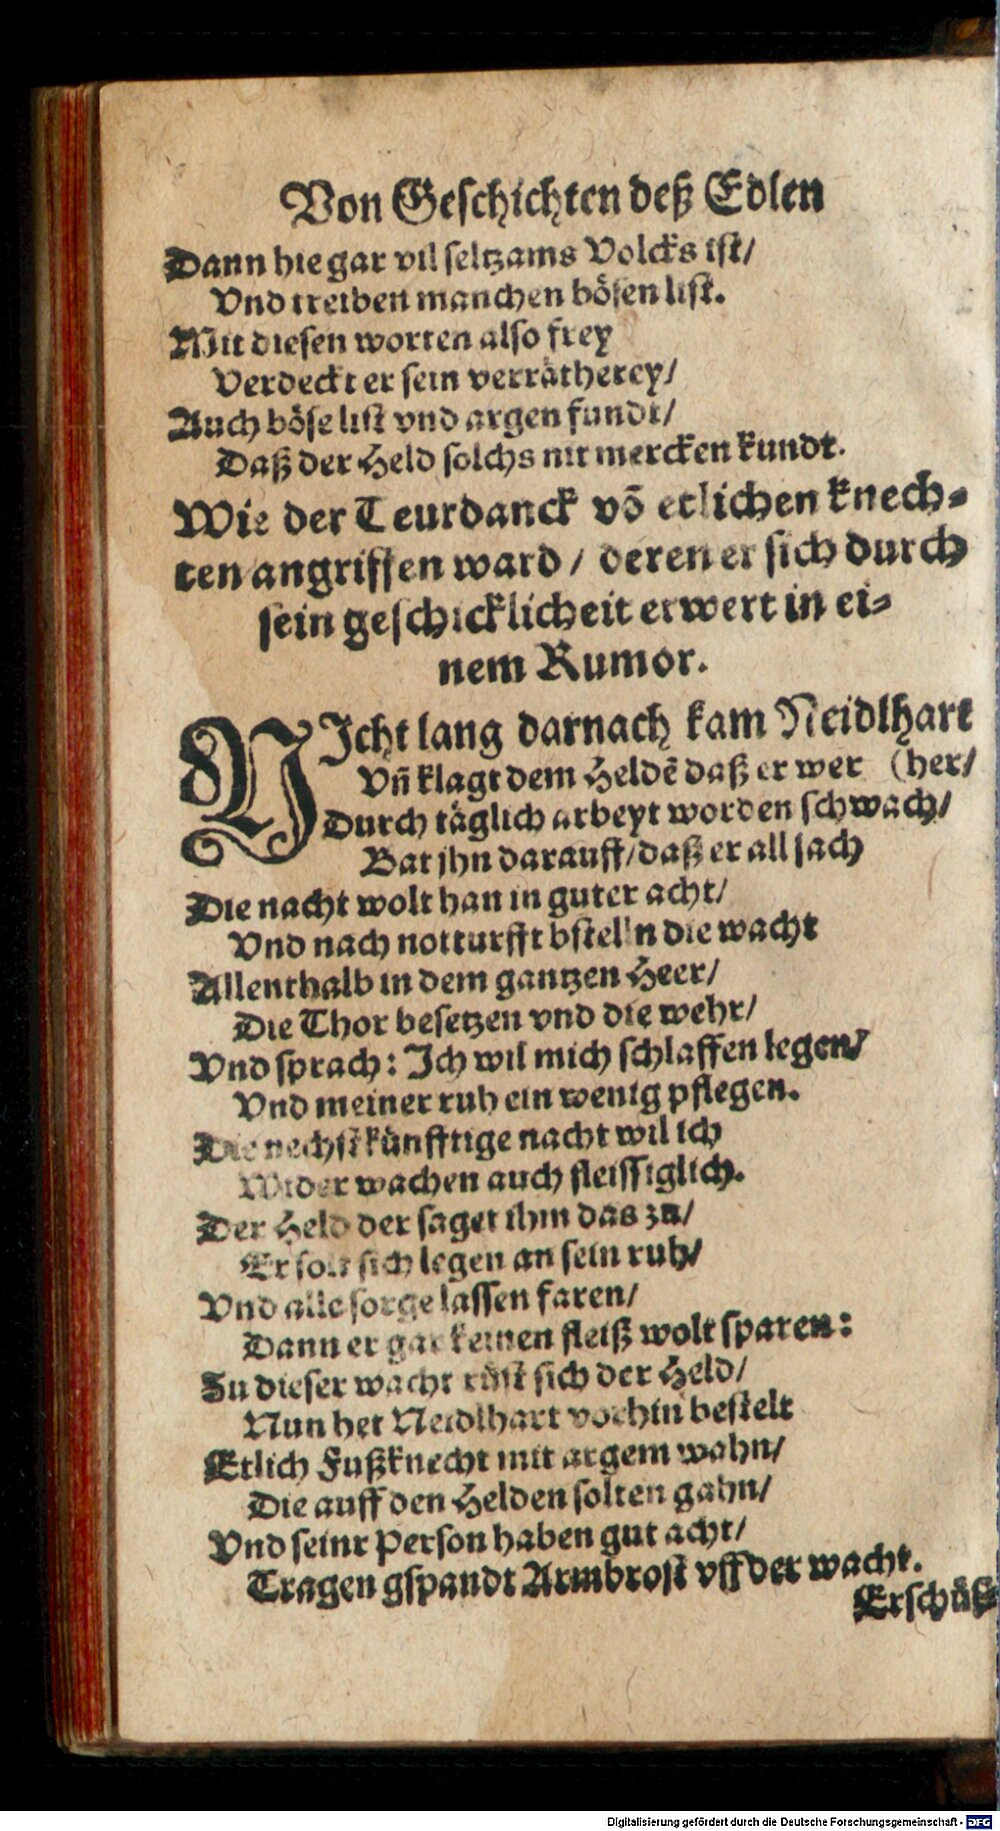 Von Geschichten deß Edlen
Dann hie gar vil seltzams Volcks ist/
Vnd treiben manchen bösen list.
Mit diesen worten also frey
Verdeckt er sein verrätherey/
Auch böse list vnd argen fundt/
Daß der Held solchs nit mercken kundt.
Wie der Teurdanck võ etlichen knech-
ten angriffen ward / deren er sich durch
sein geschicklicheit erwert in ei-
nem Rumor.
NIcht lang darnach kam Neidlhart
Vñ klagt dem Heldẽ daß er wer (her/
Durch täglich arbeyt worden schwach/
Bat jhn darauff/ daß er all sach
Die nacht wolt han in guter acht/
Vnd nach notturfft bstelln die wacht
Allenthalb in dem gantzen Heer/
Die Thor besetzen vnd die wehr/
Vnd sprach: Ich wil mich schlaffen legen/
Vnd meiner ruh ein wenig pflegen.
Die nechstkünfftige nacht wil ich
Wider wachen auch fleissiglich.
Der Held der saget ihm das zu/
Er solt sich legen an sein ruh/
Vnd alle sorge lassen faren/
Dann er gar keinen fleiß wolt sparen:
Zu dieser wacht rüst sich der Held/
Nun het Neidlhart vorhin bestelt
Etlich Fußknecht mit argem wahn/
Die auff den Helden solten gahn/
Vnd seinr Person haben gut acht/
Tragen gspandt Armbrost vff der wacht.
Erschüß-
Digitalisierung gefördert durch die Deutsche Forschungsgemeinschaft - DFG